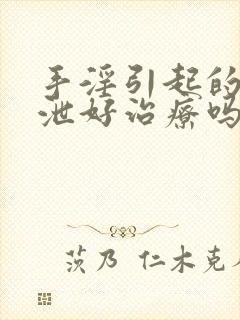 手淫引起的
泄好治疗吗
茨乃 仁木克